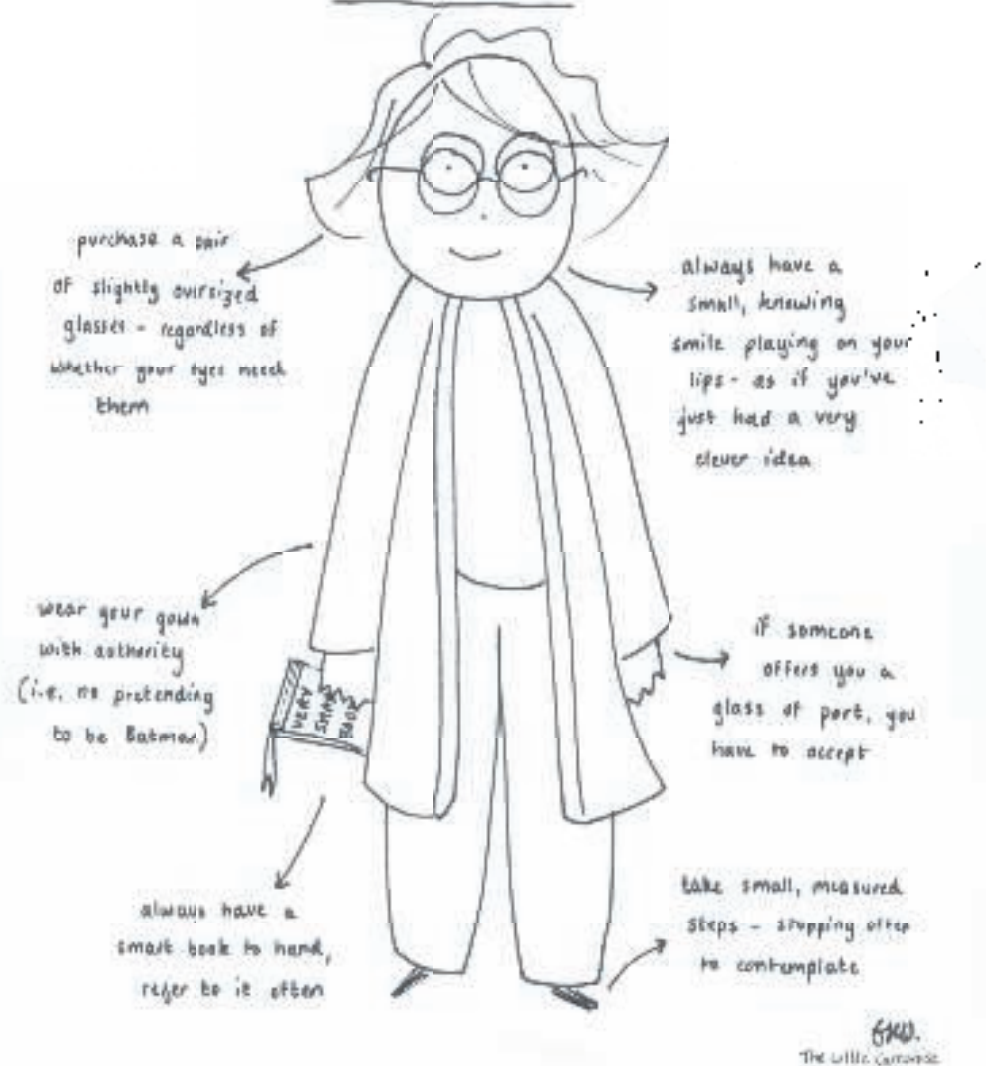 purchase a pair
of slightly oversized
glasses - regardless of
whether your eyes need
them
always have a
small, knowing
smile playing on your
lips - as if you've
just had a very
clever idea
wear your gown
with authority
(i.e. no pretending
to be Batman)
VERY
SMART
BOOK
if someone
offers you a
glass of port, you
have to accept
always have a
smart book to hand,
refer to it often
take small, measured
steps - stopping often
to contemplate
The Little